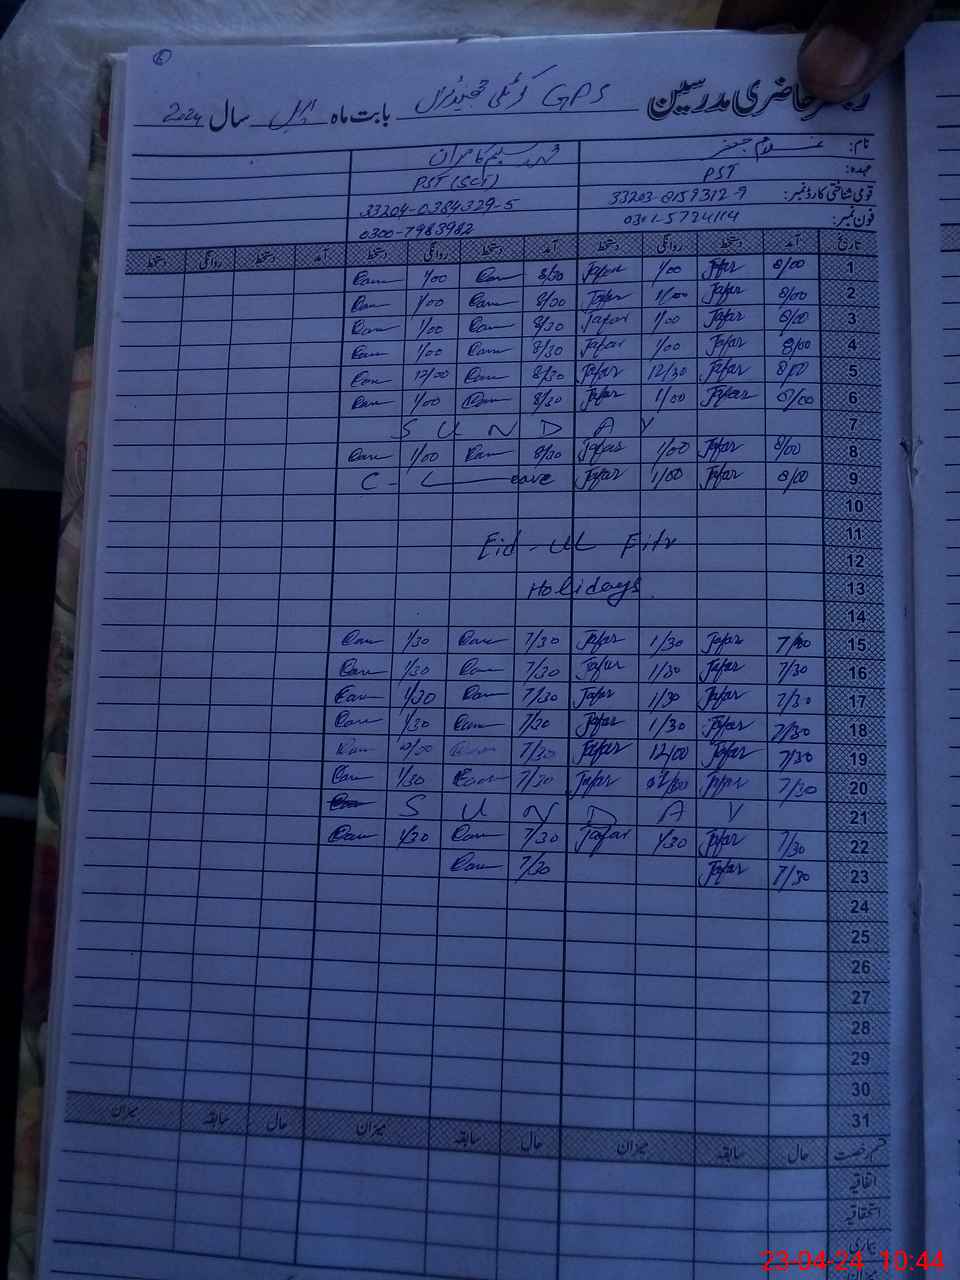 رجسٹر حاضری مدرسین GPS بابت ماہ اپریل سال 2024
نام: غلام جعفر
عہدہ: PST PST (SCT)
قومی شناختی کارڈ نمبر: 33203-0159312-9 33204-0384329-5
فون نمبر: 0301-5724114 0300-7983982
تاریخ آمد دستخط روانگی دستخط آمد دستخط روانگی دستخط آمد دستخط روانگی دستخط
1 8/00 Jafar 1/00 Jafar 8/30 1/00
2 8/00 Jafar 1/00 Jafar 8/30 1/00
3 8/00 Jafar 1/00 Jafar 8/30 1/00
4 8/00 Jafar 1/00 Jafar 8/30 1/00
5 8/00 Jafar 12/30 Jafar 8/30 12/00
6 8/00 Jafar 1/00 Jafar 8/30 1/00
7 SUNDAY
8 8/00 Jafar 1/00 Jafar 8/30 1/00
9 8/00 Jafar 1/00 Jafar C-Leave
10
11 Eid-ul Fitr
12
13 Holidays.
14
15 Jafar 1/30 Jafar 7/30 1/30
16 7/30 Jafar 1/30 Jafar 7/30 1/30
17 7/30 Jafar 1/30 Jafar 7/30 1/30
18 7/30 Jafar 1/30 Jafar 7/30 1/30
19 7/30 Jafar 12/00 Jafar 7/30
20 7/30 Jafar Jafar 7/30 1/30
21 SUNDAY
22 7/30 Jafar 1/30 Jafar 7/30 1/30
23 7/30 Jafar 7/30
24
25
26
27
28
29
30
31
قسم رخصت حال سابقہ میزان حال سابقہ میزان حال سابقہ میزان
اتفاقیہ
استحقاقیہ
بیماری
میزان
23-04-24 10:44